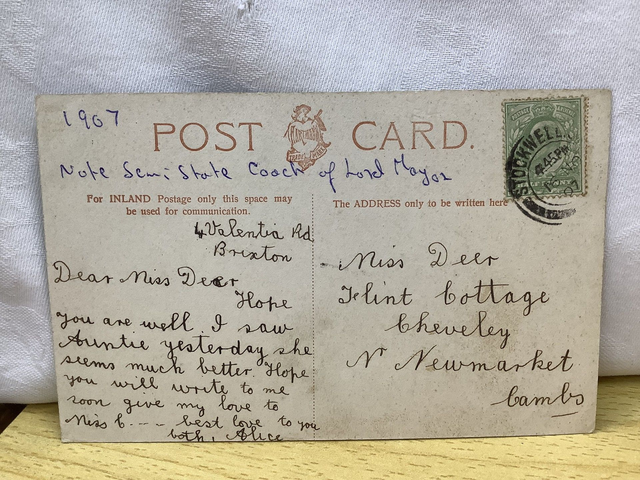 1907
POST CARD.
Note Semi State Coach of Lord Mayor
For INLAND Postage only this space may
be used for communication.
The ADDRESS only to be written here
4 Valentia Rd
Brixton
Dear Miss Deer
Hope
you are well. I saw
Auntie yesterday she
seems much better. Hope
you will write to me
soon give my love to
Miss C--- best love to you
both, Alice
Miss Deer
Flint Cottage
Cheveley
Nr Newmarket
Cambs
STOCKWELL